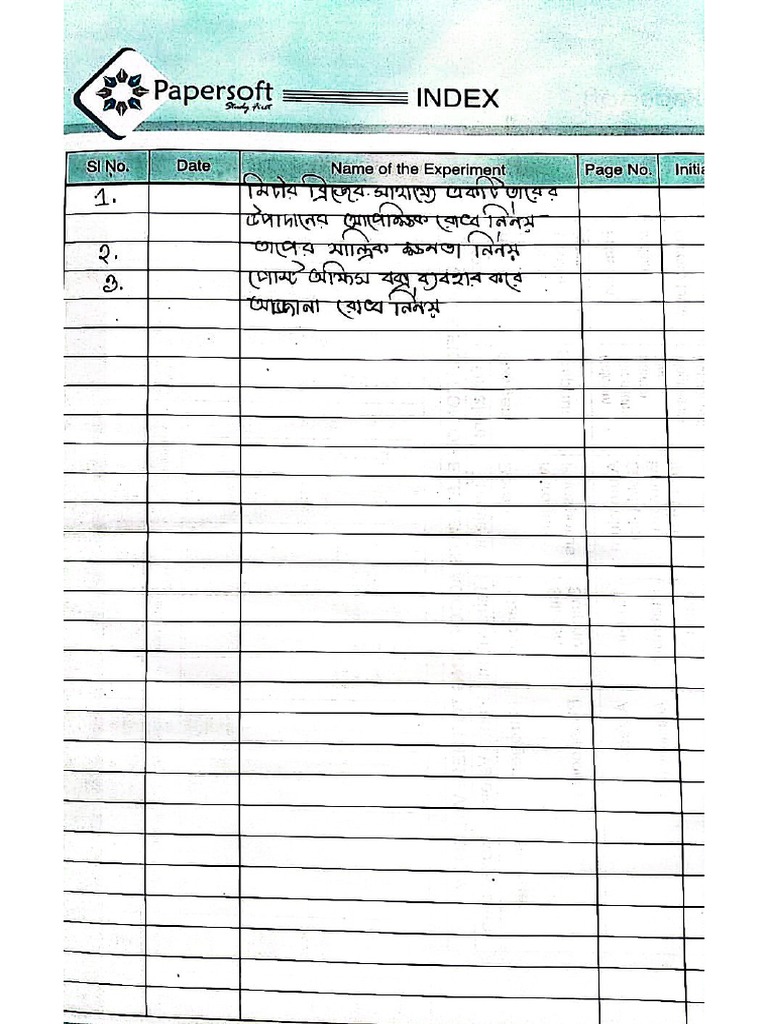 Papersoft
Study First
INDEX
Sl No. Date Name of the Experiment Page No. Initia
১. মিটার ব্রিজের সাহায্যে একটি তারের
উপাদানের আপেক্ষিক রোধ নির্নয়
২. তাপের যান্ত্রিক ক্ষমতা নির্নয়
৩. পোস্ট অফিস বক্স ব্যবহার করে
অজানা রোধ নির্নয়